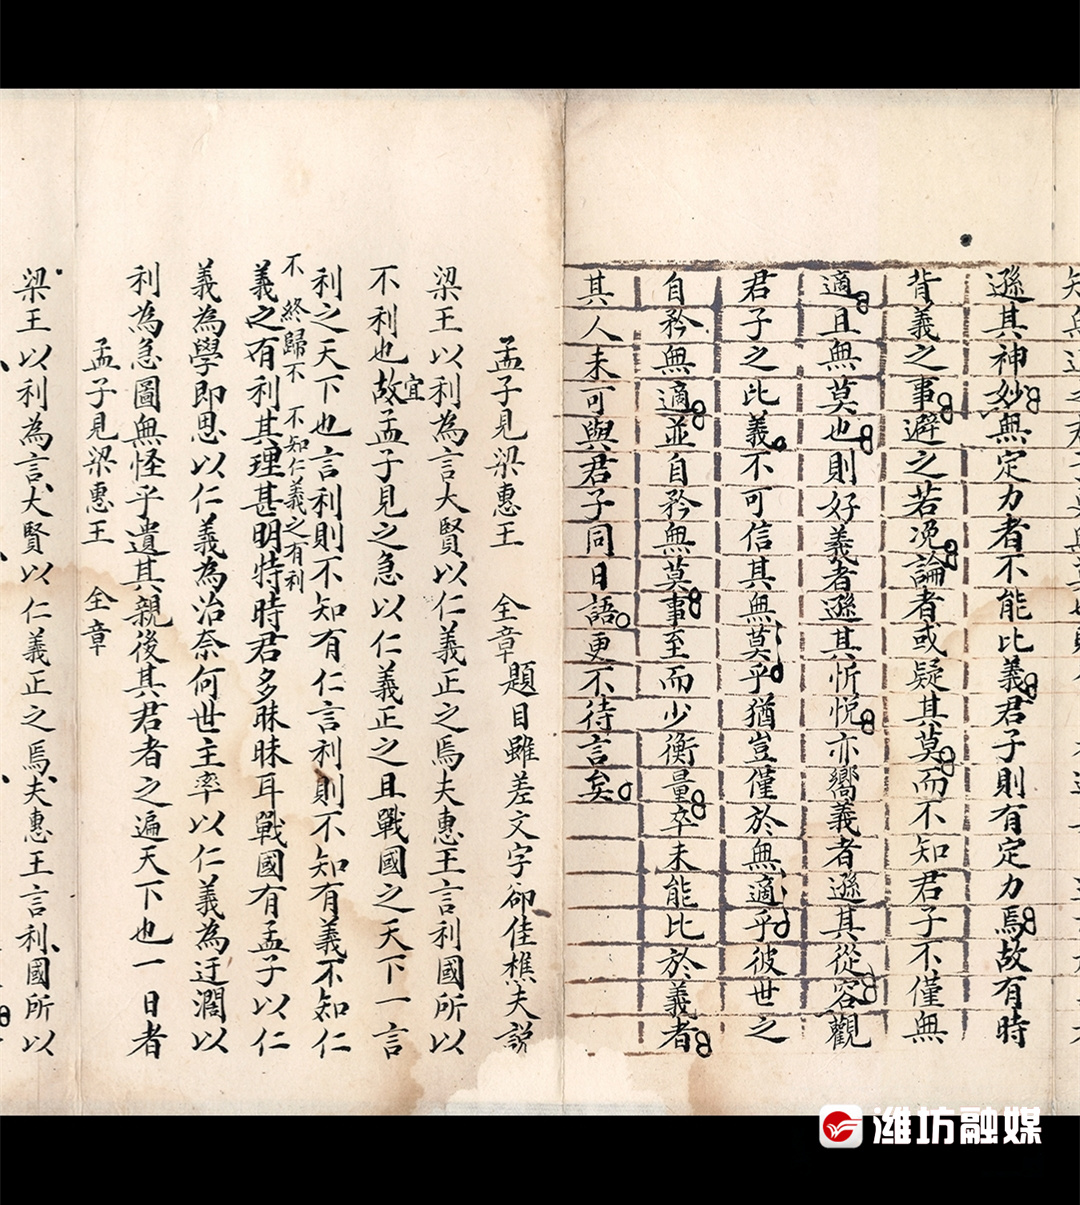 遜其神妙無定力者不能比義君子則有定力焉故有時
背義之事避之若凂論者或疑其莫而不知君子不僅無
適且無莫也則好義者遜其忻悅亦嚮義者遜其從容觀
君子之比義不可信其無莫乎猶豈僅於無適乎彼世之
自矜無適並自矜無莫事至而少衡量卒未能比於義者
其人未可與君子同日語更不待言矣
孟子見梁惠王 全章 題目雖差文字卻佳樵夫說
梁王以利為言大賢以仁義正之焉夫惠王言利國所以
宜
不利也故孟子見之急以仁義正之且戰國之天下一言
利之天下也言利則不知有仁言利則不知有義不知仁
不 終歸不 不知仁義之有利
義之有利其理甚明特時君多昧昧耳戰國有孟子以仁
義為學即思以仁義為治奈何世主率以仁義為迂濶以
利為急圖無怪乎遺其親後其君者之遍天下也一日者
孟子見梁惠王 全章
梁王以利為言大賢以仁義正之焉夫惠王言利國所以
潍坊融媒